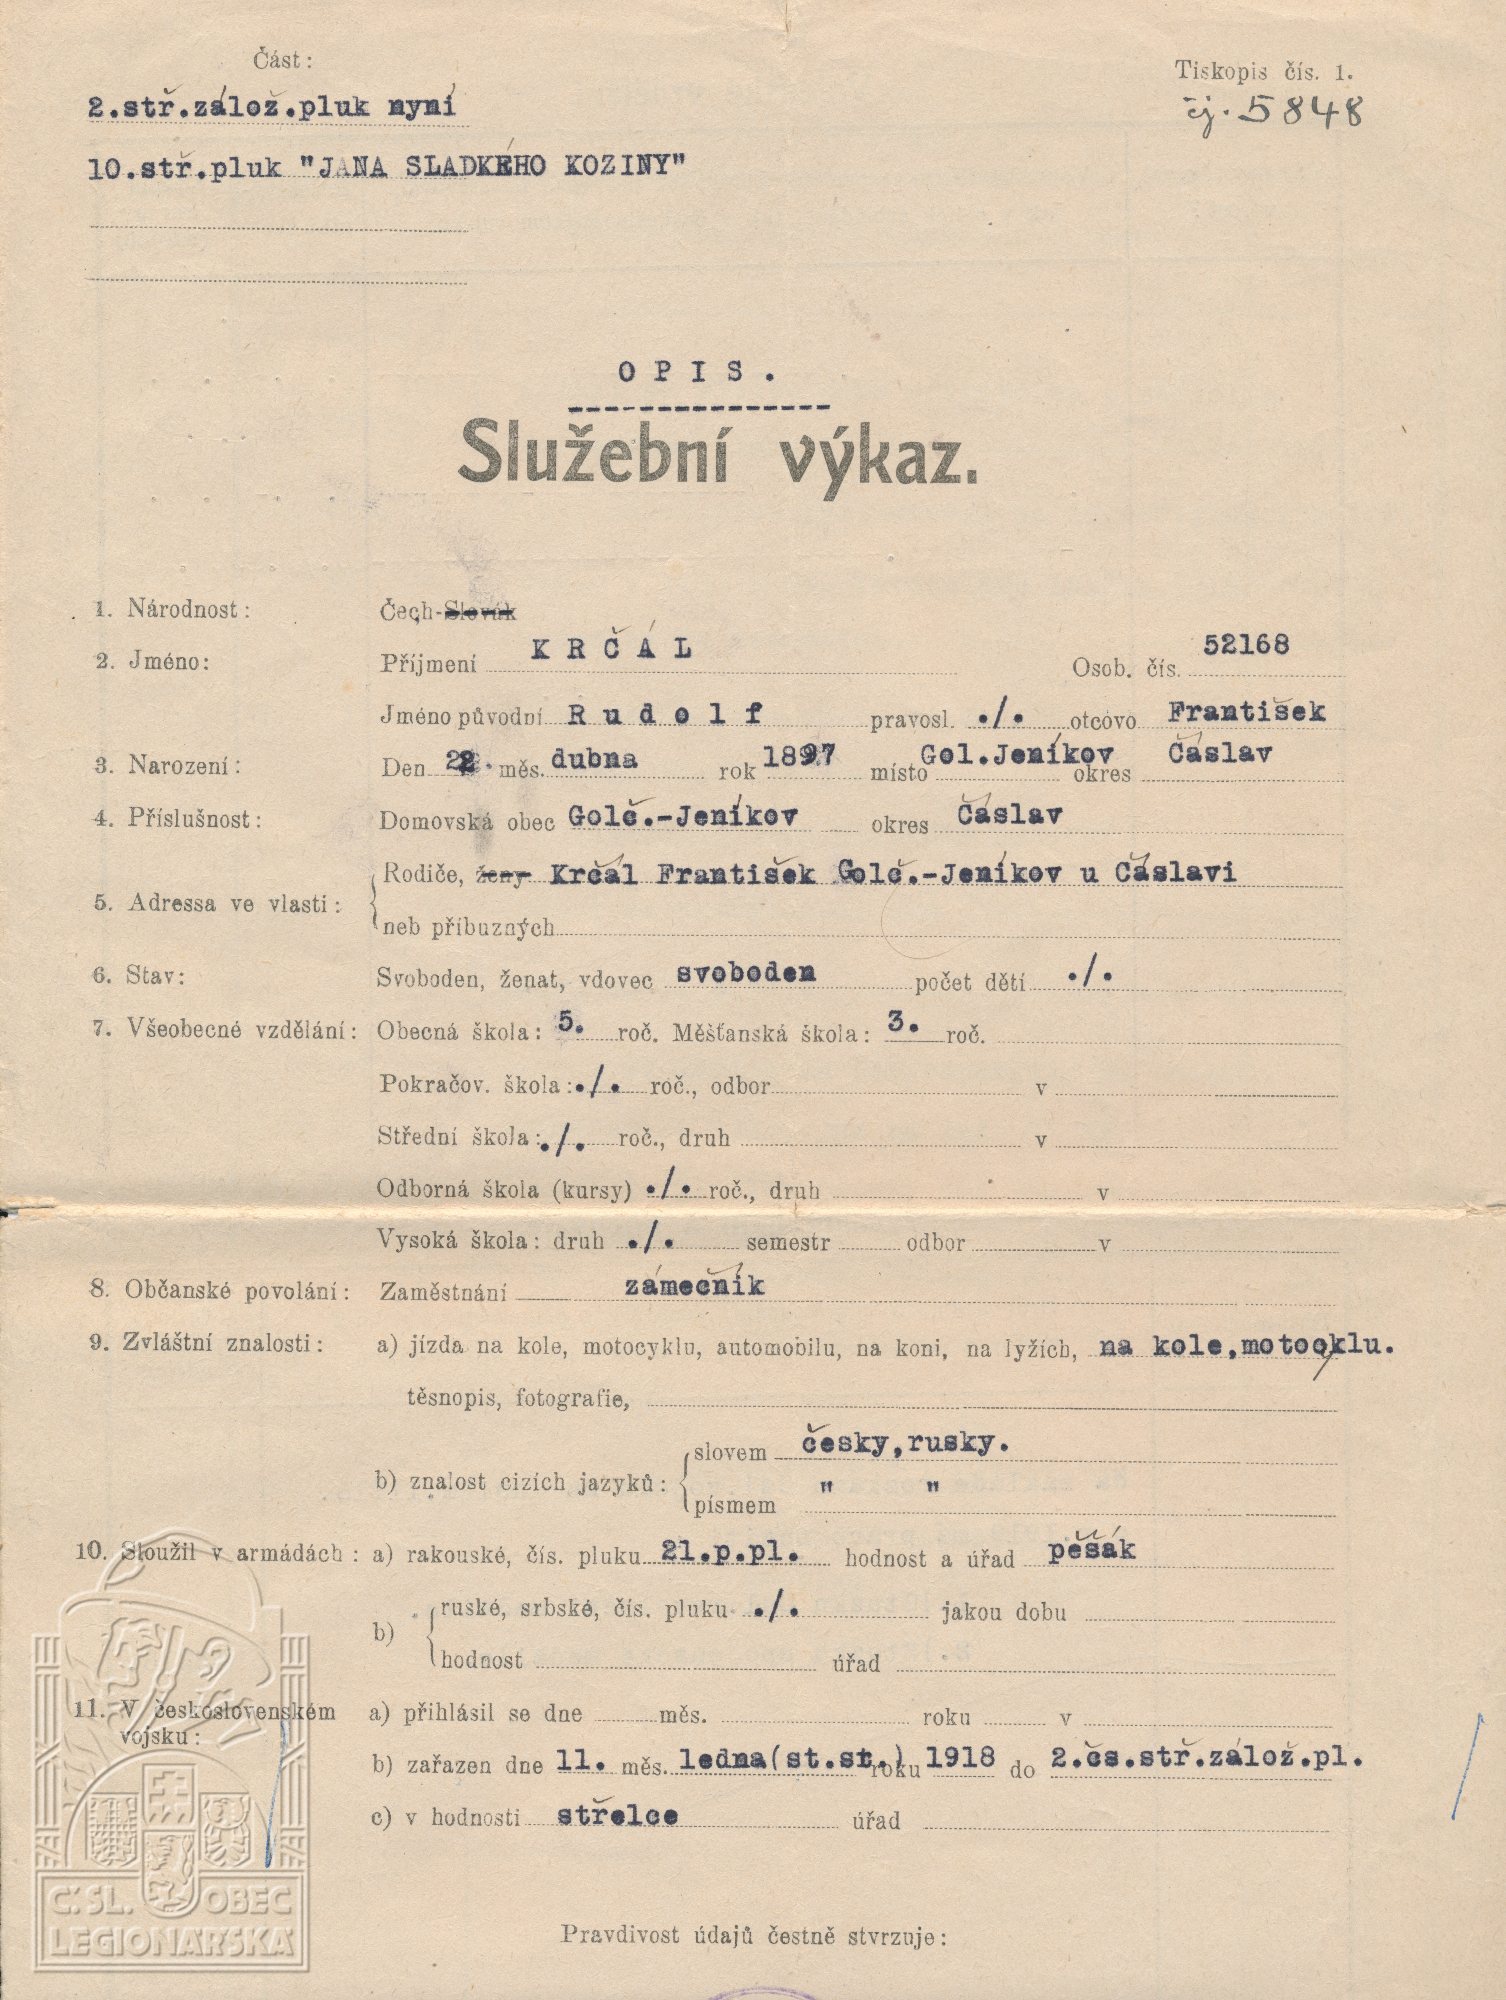 Část:
Tiskopis čís. 1.
čj. 5848
2.stř.zálož.pluk nyní
10.stř.pluk "JANA SLADKÉHO KOZINY"
OPIS.
Služební výkaz.
1. Národnost: Čech-Slovák
2. Jméno: Příjmení KRČÁL Osob. čís. 52168
Jméno původní Rudolf pravosl. ./. otcovo František
3. Narození: Den 22. měs. dubna rok 1897 místo Gol.Jeníkov okres Čáslav
4. Příslušnost: Domovská obec Golč.-Jeníkov okres Čáslav
5. Adressa ve vlasti: Rodiče, ženy Krčál František Golč.-Jeníkov u Čáslavi
neb příbuzných
6. Stav: Svoboden, ženat, vdovec svoboden počet dětí ./.
7. Všeobecné vzdělání: Obecná škola: 5. roč. Měšťanská škola: 3. roč.
Pokračov. škola: ./. roč., odbor v
Střední škola: ./. roč., druh v
Odborná škola (kursy) ./. roč., druh v
Vysoká škola: druh ./. semestr odbor v
8. Občanské povolání: Zaměstnání zámečník
9. Zvláštní znalosti: a) jízda na kole, motocyklu, automobilu, na koni, na lyžích, na kole, motocyklu.
těsnopis, fotografie,
b) znalost cizích jazyků: slovem česky, rusky.
písmem " "
10. Sloužil v armádách: a) rakouské, čís. pluku 21.p.pl. hodnost a úřad pěšák
b) ruské, srbské, čís. pluku ./. jakou dobu
hodnost úřad
11. V československém vojsku: a) přihlásil se dne měs. roku v
b) zařazen dne 11. měs. ledna(st.st.) roku 1918 do 2.čs.stř.zálož.pl.
c) v hodnosti střelce úřad
Pravdivost údajů čestně stvrzuje:
Č.SL. OBEC
LEGIONÁŘSKÁ